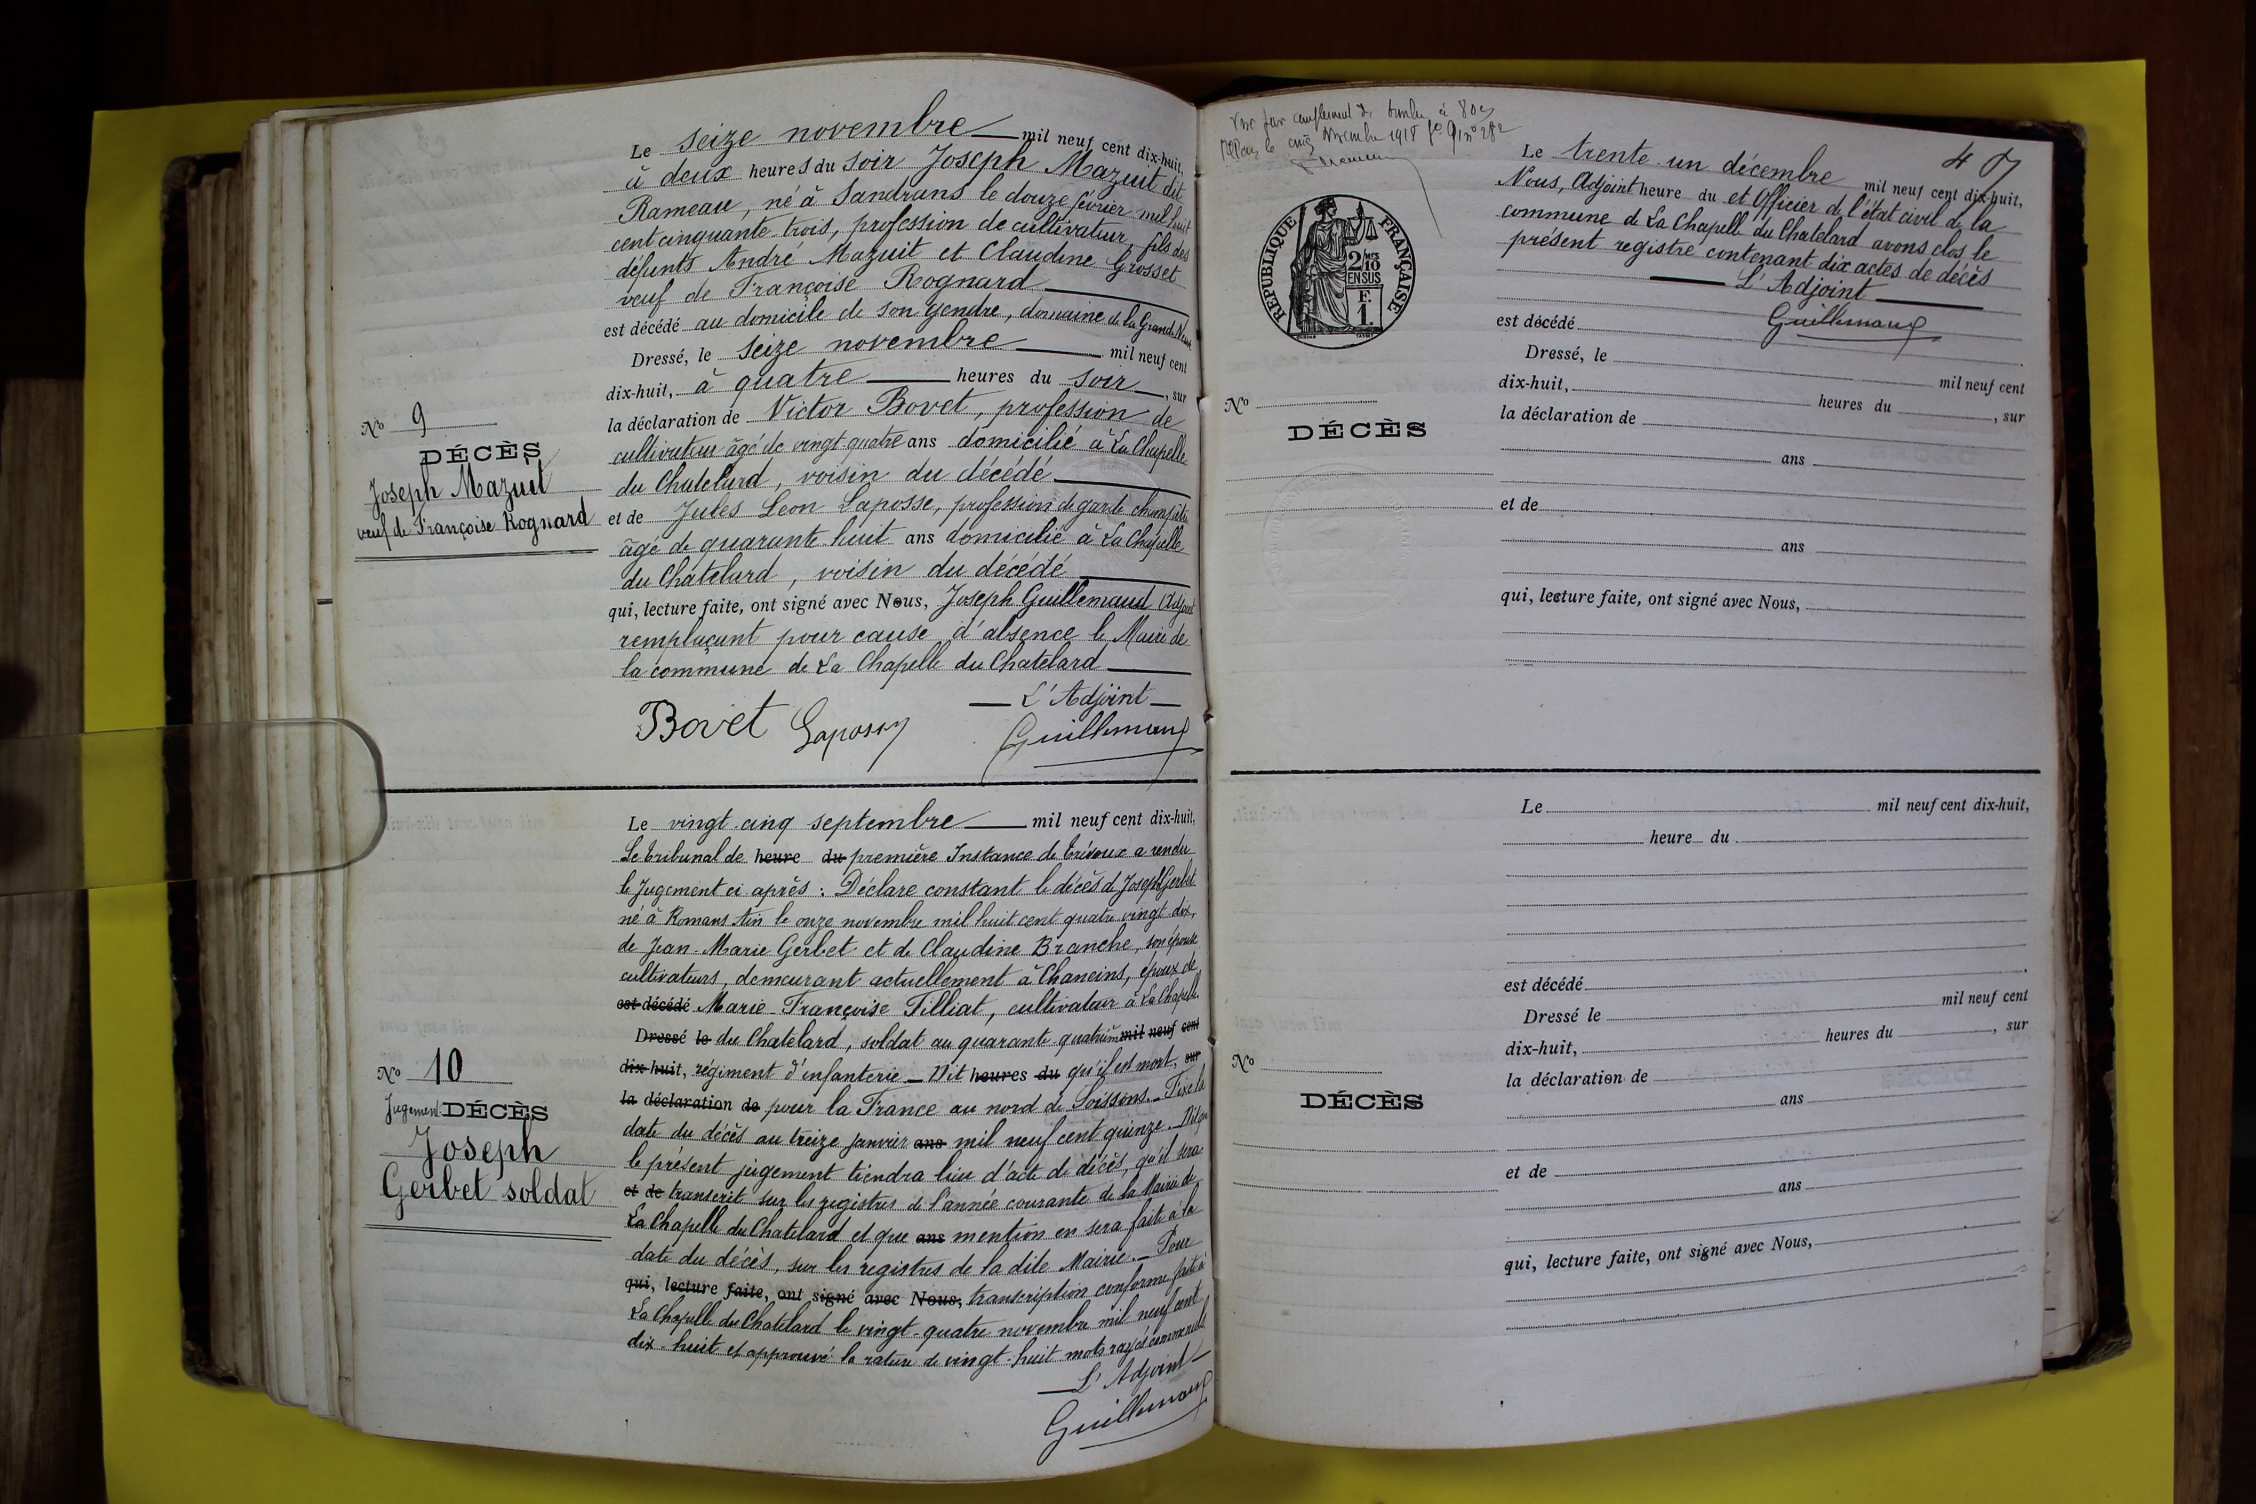 Le seize novembre mil neuf cent dix-huit,
à deux heures du soir Joseph Mazuit dit
Rameau, né à Sandrans le douze février mil huit
cent cinquante trois, profession de cultivateur, fils des
défunts André Mazuit et Claudine Grosset
veuf de Françoise Rognard
est décédé au domicile de son gendre, domaine de la Grande
Dressé, le seize novembre mil neuf cent
dix-huit, à quatre heures du soir, sur
la déclaration de Victor Bovet, profession de
cultivateur âgé de vingt quatre ans domicilié à La Chapelle
du Chatelard, voisin du décédé
et de Jules Leon Laposse, profession de garde champêtre
âgé de quarante huit ans domicilié à La Chapelle
du Châtelard, voisin du décédé
qui, lecture faite, ont signé avec Nous, Joseph Guillemaud Adjoint
remplaçant pour cause d'absence le Maire de
la commune de La Chapelle du Chatelard
L'Adjoint
Bovet Laposse Guillemaud
No 9
DÉCÈS
Joseph Mazuit
veuf de Françoise Rognard
Le vingt-cinq septembre mil neuf cent dix-huit,
Le tribunal de heure du première Instance de Trévoux a rendu
le Jugement ci après : Déclare constant le décès d Joseph Gerbet
né à Romans Ain le onze novembre mil huit cent quatre vingt dix,
de Jean-Marie Gerbet et de Claudine Branche, son épouse
cultivateurs, demeurant actuellement à Chaneins, époux de
est décédé Marie Françoise Tilliat, cultivateur à La Chapelle
Dressé le du Chatelard, soldat au quarante quatrième mil neuf cent
dix-huit, régiment d'infanterie _ Dit heures du qu'il est mort, sur
la déclaration de pour la France au nord de Soissons._ Fixe la
date du décès au treize janvier ans mil neuf cent quinze. Dit que
le présent jugement tiendra lieu d'acte de décès, qu'il sera
et de transcrit sur les registres de l'année courante de la Mairie de
La Chapelle du Chatelard et que ans mention en sera faite à la
date du décès, sur les registres de la dite Mairie._ Pour
qui, lecture faite, ont signé avec Nous, transcription conforme faite à
La Chapelle du Chatelard le vingt-quatre novembre mil neuf cent
dix-huit et approuvé la rature de vingt-huit mots rayés comme nuls
L'Adjoint
Guillemaud
No 10
Jugement DÉCÈS
Joseph
Gerbet soldat
Vu pour complément de timbre à 80c
le cinq Novembre 1918 fo 91 no 282
RÉPUBLIQUE FRANÇAISE
2/10
EN SUS
F.
1.
Le trente-un décembre mil neuf cent dix-huit,
Nous, Adjoint heure du et Officier de l'état civil de la
commune de La Chapelle du Chatelard avons clos le
présent registre contenant dix actes de décès
L'Adjoint
Guillemaud
est décédé
Dressé, le mil neuf cent
dix-huit, heures du , sur
la déclaration de
ans
et de
ans
qui, lecture faite, ont signé avec Nous,
No
DÉCÈS
Le mil neuf cent dix-huit,
heure du
est décédé
Dressé le mil neuf cent
dix-huit, heures du , sur
la déclaration de
ans
et de
ans
qui, lecture faite, ont signé avec Nous,
No
DÉCÈS